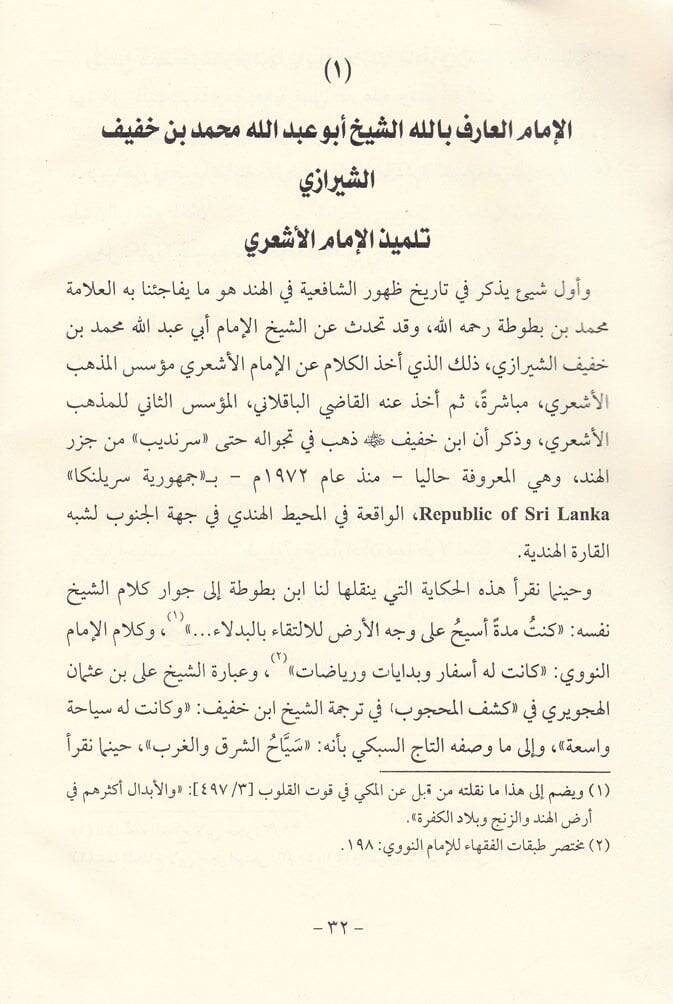 (١)
الإمام العارف بالله الشيخ أبو عبد الله محمد بن خفيف
الشيرازي
تلميذ الإمام الأشعري
وأول شيئ يذكر في تاريخ ظهور الشافعية في الهند هو ما يفاجئنا به العلامة
محمد بن بطوطة رحمه الله، وقد تحدث عن الشيخ الإمام أبي عبد الله محمد بن
خفيف الشيرازي، ذلك الذي أخذ الكلام عن الإمام الأشعري مؤسس المذهب
الأشعري، مباشرةً، ثم أخذ عنه القاضي الباقلاني، المؤسس الثاني للمذهب
الأشعري، وذكر أن ابن خفيف ذهب في تجواله حتى «سرنديب» من جزر
الهند، وهي المعروفة حاليا - منذ عام ١٩٧٢م - بـ«جمهورية سريلنكا»
Republic of Sri Lanka، الواقعة في المحيط الهندي في جهة الجنوب لشبه
القارة الهندية.
وحينما نقرأ هذه الحكاية التي ينقلها لنا ابن بطوطة إلى جوار كلام الشيخ
نفسه: «كنتُ مدةً أسيحُ على وجه الأرض للالتقاء بالبدلاء...»(١)، وكلام الإمام
النووي: «كانت له أسفار وبدايات ورياضات»(٢)، وعبارة الشيخ على بن عثمان
الهجويري في «كشف المحجوب» في ترجمة الشيخ ابن خفيف: «وكانت له سياحة
واسعة»، وإلى ما وصفه التاج السبكي بأنه: «سَيَّاحُ الشرق والغرب»، حينما نقرأ
(١) ويضم إلى هذا ما نقلته من قبل عن المكي في قوت القلوب [٣/ ٤٩٧]: «والأبدال أكثرهم في
أرض الهند والزنج وبلاد الكفرة».
(٢) مختصر طبقات الفقهاء للإمام النووي: ١٩٨.
- ٣٢ -